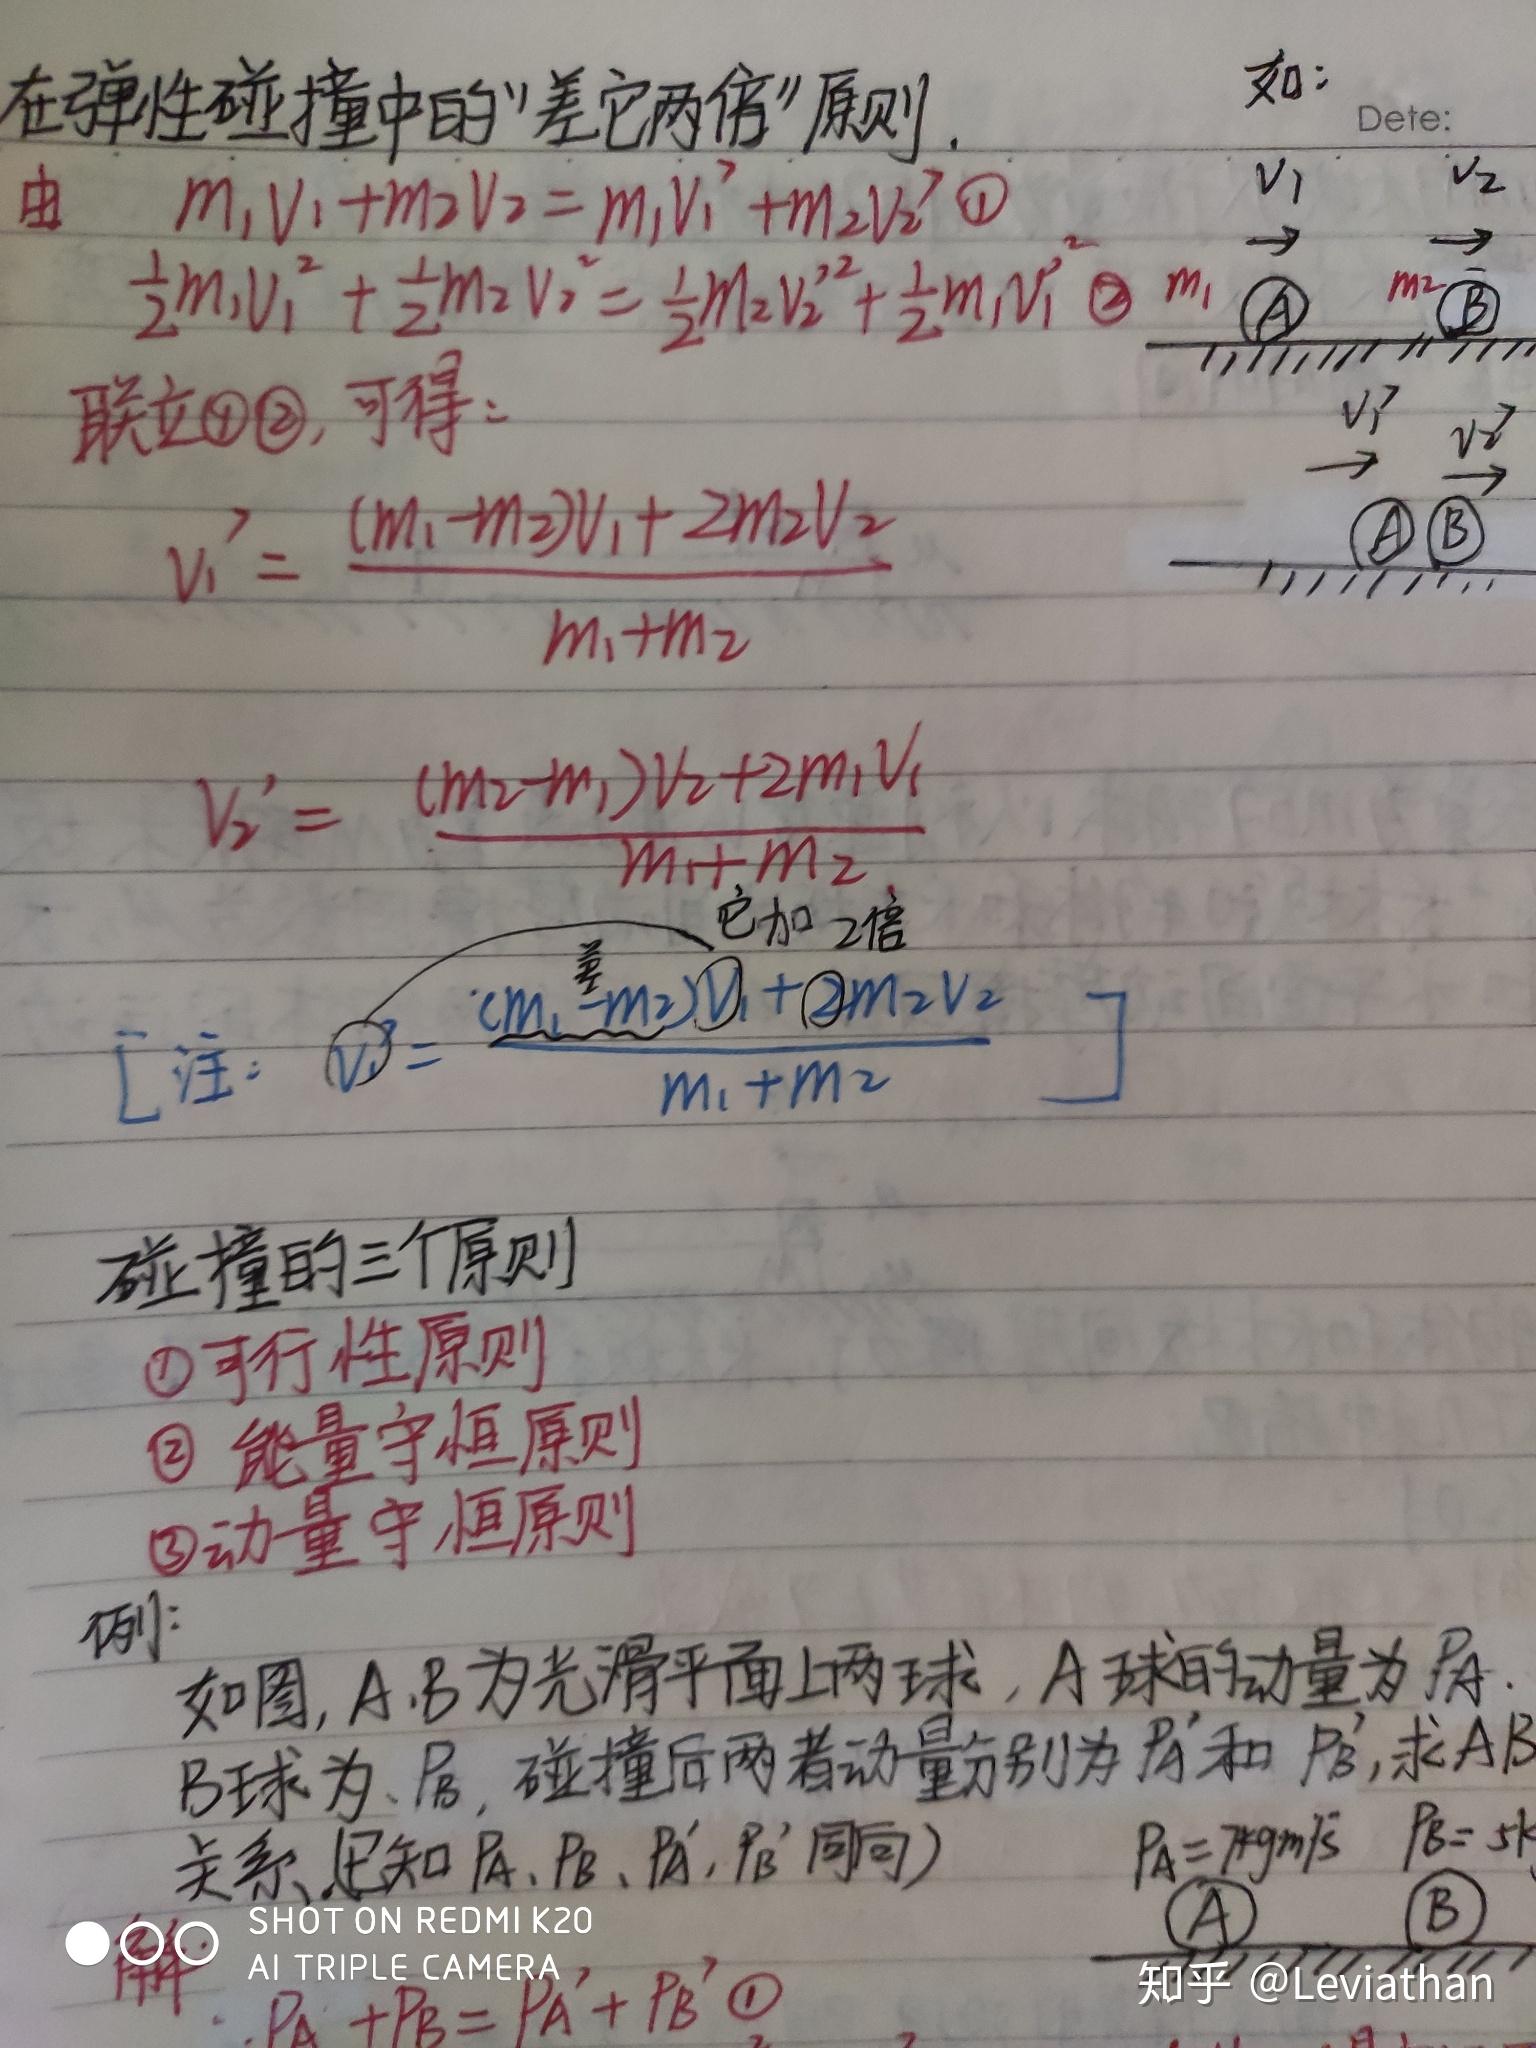 在弹性碰撞中的"差它两倍"原则.
如:
Dete:
由 m₁v₁+m₂v₂=m₁v₁'+m₂v₂' ①
½m₁v₁²+½m₂v₂²=½m₂v₂'²+½m₁v₁'² ②
v₁ v₂
→ →
m₁ A m₂ B
联立①②,可得:
v₁' v₂'
→ →
A B
v₁'=((m₁-m₂)v₁+2m₂v₂)/(m₁+m₂)
v₂'=((m₂-m₁)v₂+2m₁v₁)/(m₁+m₂)
差 它加2倍
[注: v₁'=((m₁-m₂)v₁+2m₂v₂)/(m₁+m₂)]
碰撞的三个原则
①可行性原则
② 能量守恒原则
③动量守恒原则
例:
如图,A、B为光滑平面上两球,A球的动量为PA.
B球为、PB,碰撞后两者动量分别为PA'和PB',求AB
关系、(已知PA、PB、PA',PB'同向)
PA=7kgm/s PB=5k
A B
解
∴PA+PB=PA'+PB' ①
SHOT ON REDMI K20
AI TRIPLE CAMERA
知乎 @Leviathan